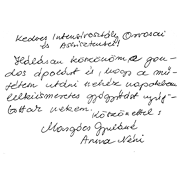 Kedves Intenzívosztály Orvosai
és Asszisztensei!
Hálásan köszönöm a gon-
dos ápolást és, hogy a mű-
tétem utáni nehéz napokban
lelkiismeretes gyógyítást nyúj-
tottak nekem.
Köszönettel:
Gyuláné
Anna Néni